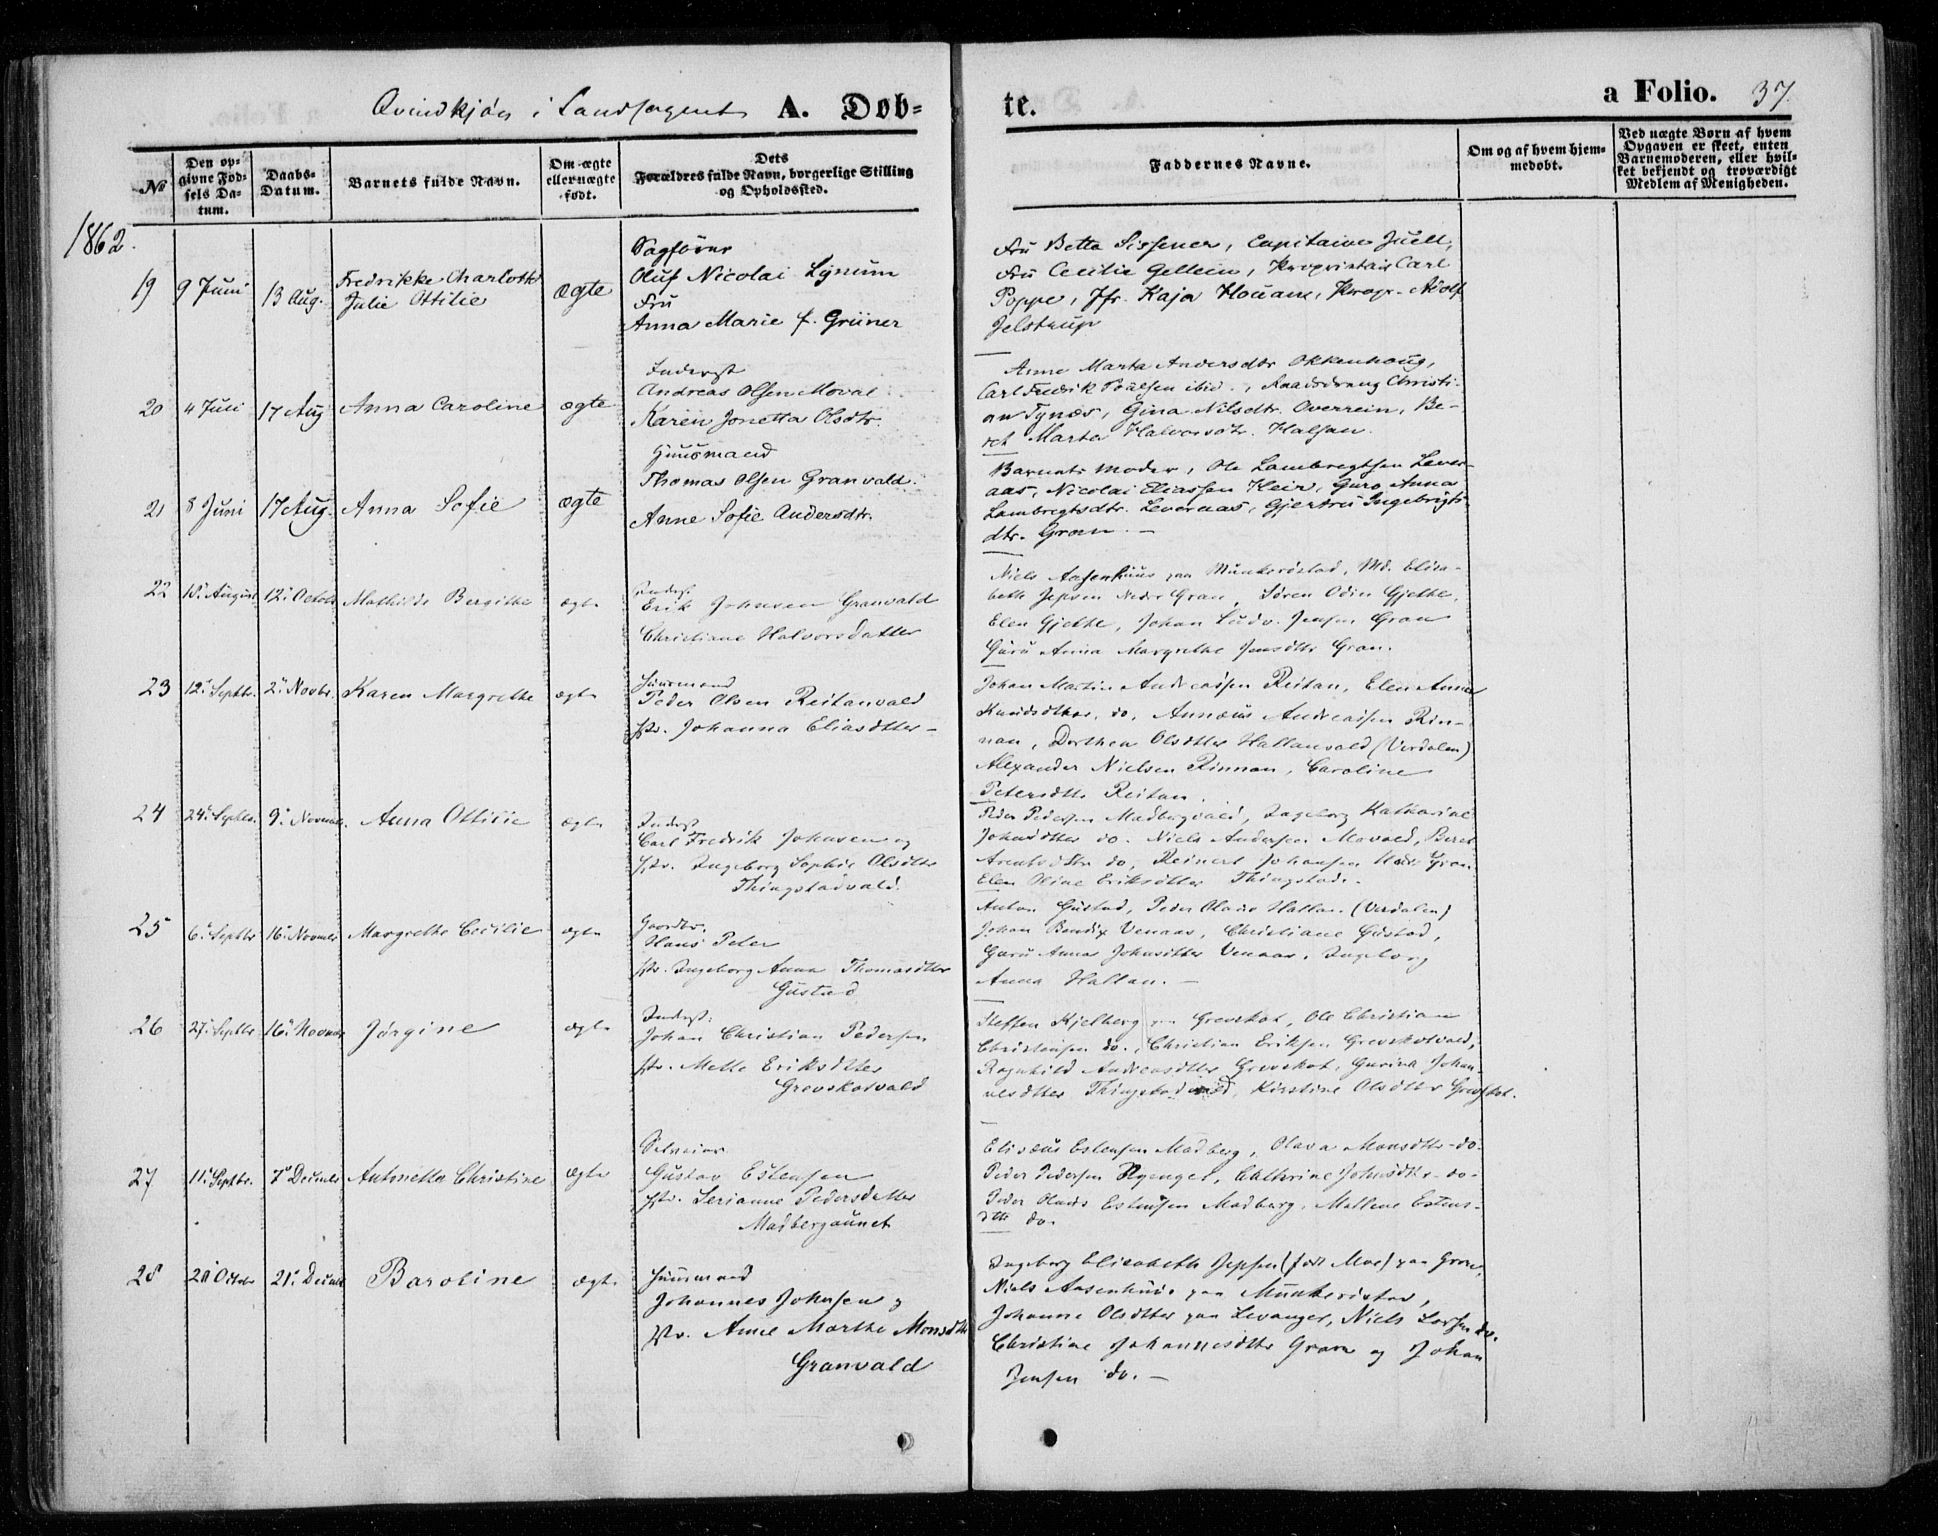 Qvindkjøn i Landsognet A. Døb=
te.
a Folio. 37.
No
Den op=
givne Fød=
sels Da=
tum.
Daabs=
Datum.
Barnets fulde Navn.
Om ægte
eller uægte
født.
Dets
Forældres fulde Navn, borgerlige Stilling
og Opholdssted.
Faddernes Navne.
Om og af hvem hjem=
medøbt.
Ved uægte Børn af hvem
Opgaven er skeet, enten
Barnemoderen, eller hvil=
ket bekjendt og troværdigt
Medlem af Menigheden.
1862.
19 9 Juni 13 Aug. Fredrikke Charlotte
Julie Ottilie
ægte
Sagfører
Oluf Nicolai Lynum
Fru
Anna Marie f. Grüner
Fru Betta Sissener, Capitaine Juell,
Fru Cecilie Gellein, Proprietair Carl
Poppe, Jfr. Kaja Houam, Propr. Adolf
Jelstrup
20 4 Juli 17 Aug Anna Caroline ægte
Inderst
Andreas Olsen Moval
Karen Jonetta Olsdtr.
Anne Marta Andersdtr Okkenhoug,
Carl Fredrik Poulsen ibid., Christi-
an Tynæs, Gina Nilsdtr. Overrein, Be-
ret Marta Halvorsdtr. Halsan.
21 8 Juni 17 Aug. Anna Sofie ægte
Huusmand
Thomas Olsen Granvald.
Anne Sofie Andersdtr.
Barnets Moder, Ole Lambregtsen Lever-
aas, Nicolai Eliassen Hein, Guro Anna
Lambregtsdtr. Leveraas, Gjertru Ingebrigts-
dtr. Gran. —
22 10. August 12. Octob. Mathilde Bergithe ægte
Inderst
Erik Johnsen Granvald
Christiane Halvorsdatter
Niels Aasenhuus paa Munkerøstad, Md. Elisa-
beth Jepsen Nedr Gran, Søren Odin Gjethe,
Elen Gjethe, Johan Ludv. Jensen Gran
Guru Anna Margrethe Jensdtr Gran.
23 12. Septbr. 2. Novbr. Karen Margrethe ægte
Huusmand
Peder Olsen Reitanvald
Hstr. Johanna Eliasdtter —
Johan Martin Andreassen Reitan, Elen Anna
Knudsdtter, do, Annæus Andreassen Rin-
nan, Dorthea Olsdtter Hallanvald (Verdalen)
Alexander Nielsen Rinnan, Caroline
Petersdtr Reitan.
24 24. Septbr. 9. Novembr. Anna Ottilie ægte
Inderst
Carl Fredrik Johnsen og
Hstr. Ingeborg Sophie Olsdtter
Thingstadvald.
Peder Pedersen Madbergvald, Ingeborg Katharina
Johnsdtter do. Niels Andersen Movald, Beret
Arentsdtter do, Reinert Johansen Nedr Gran
Elen Oline Eriksdtter Thingstad.
25 6. Septbr 16. Novembr Margrethe Cecilie ægte
Gaardbr.
Hans Peter
Hstr. Ingeborg Anna Thomasdtter
Gustad
Anton Gustad, Peder Olaus Hallan (Verdalen)
Johan Bendix Venaas, Christiane Gustad,
Guru Anna Johnsdtter Venaas, Ingeborg
Anna Hallan. —
26 27. Septbr 16. Novembr Jørgine ægte
Inderst.
Johan Christian Pedersen
Hstr. Mette Eriksdtter
Grevskotvald
Steffen Kjelberg paa Grevskot, Ole Christian
Christensen do., Christian Eriksen Grevskotvald,
Ragnhild Andreasdtter Grevskot, Gurina Johan-
nesdtter Thingstadvald, Kirstine Olsdtter Grevskot.
27 11. Septbr. 7. Decembr Antonetta Christine ægte
Selveier
Gustav Estensen
Hstr. Serianna Pedersdatter
Madbergaunet
Elisæus Estensen Madberg, Olava Monsdtter do.
Peder Pedersen Ryenget, Cathrine Johnsdtter do.
Peder Olaus Estensen Madberg, Mallene Estens-
dtter do.
28 20 Octobr 21. Decembr Baroline ægte
Huusmand
Johannes Johnsen og
Hstr. Anne Marthe Monsdtr
Granvald
Ingeborg Elisabeth Jepsen (født Moe) paa Gran,
Niels Aasenhuus paa Munkerøstad,
Johanna Olsdtter paa Levanger, Niels Larsen do.
Christine Johannesdtter Gran og Johan
Jensen do. —